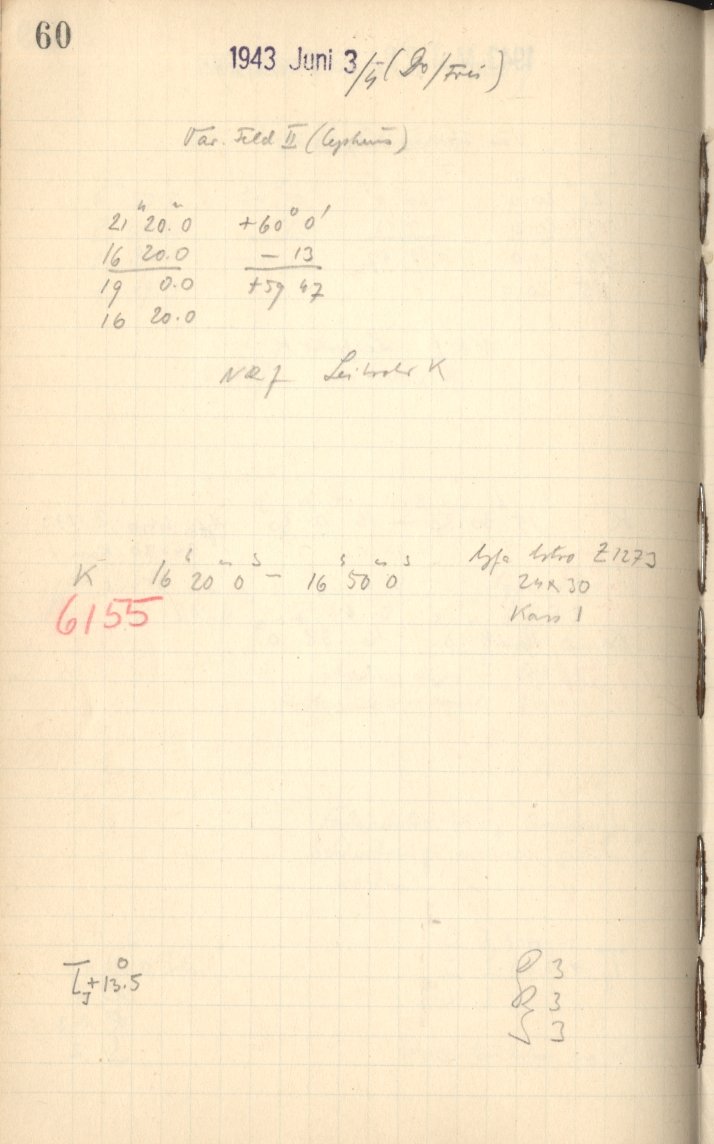 60
1943 Juni 3/4 (Do/Frei)
Var. Feld II (Cepheus)
21ʰ 20.ᵐ0 +60° 0'
16 20.0 – 13
19 0.0 +59 47
16 20.0
Leitrohr K
K 16ʰ 20ᵐ 0ˢ – 16ʰ 50ᵐ 0ˢ Agfa Astro Z1273
24x30
Kass 1
6155
+13.5
3
R 3
3